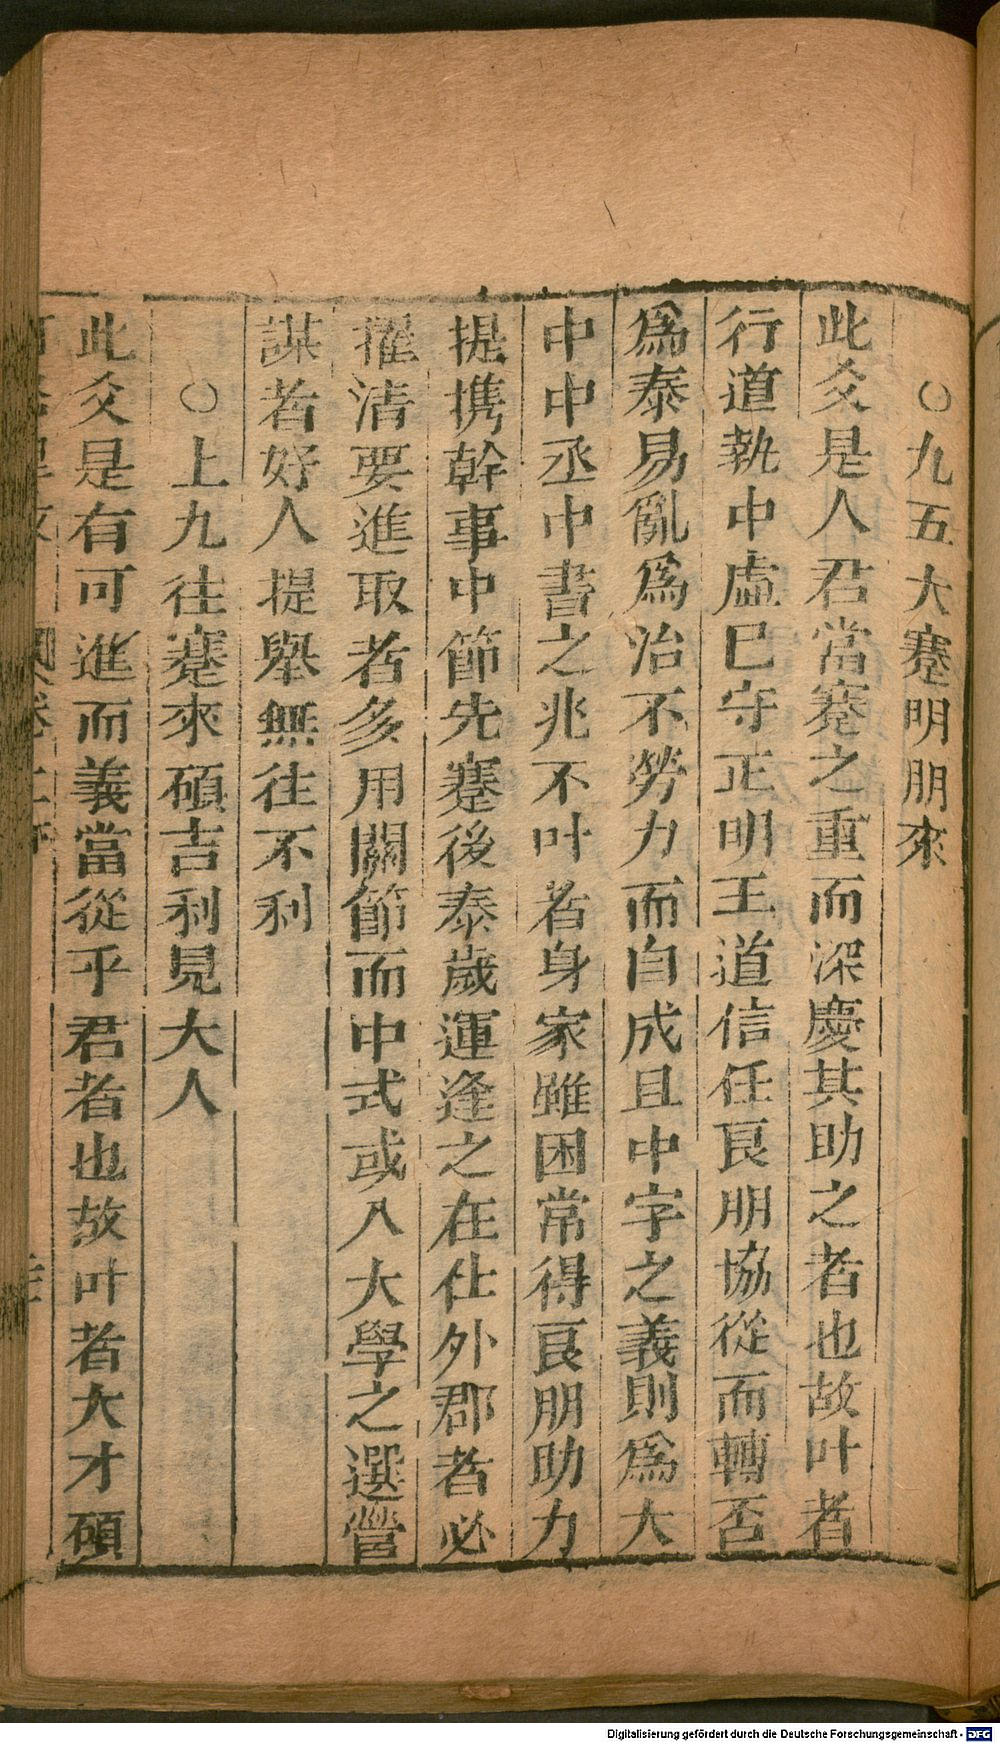 ○九五大蹇明朋來
此爻是人君當蹇之重而深慶其助之者也故叶者
行道執中虛已守正明王道信任良朋協從而轉否
爲泰易亂爲治不勞力而自成且中字之義則爲大
中中丞中書之兆不叶者身家雖困常得良朋助力
提携幹事中節先蹇後泰歲運逢之在仕外郡者必
擢清要進取者多用關節而中式或入大學之選營
謀者好人提舉無往不利
○上九往蹇來碩吉利見大人
此爻是有可進而義當從乎君者也故叶者大才碩
Digitalisierung gefördert durch die Deutsche Forschungsgemeinschaft - DFG